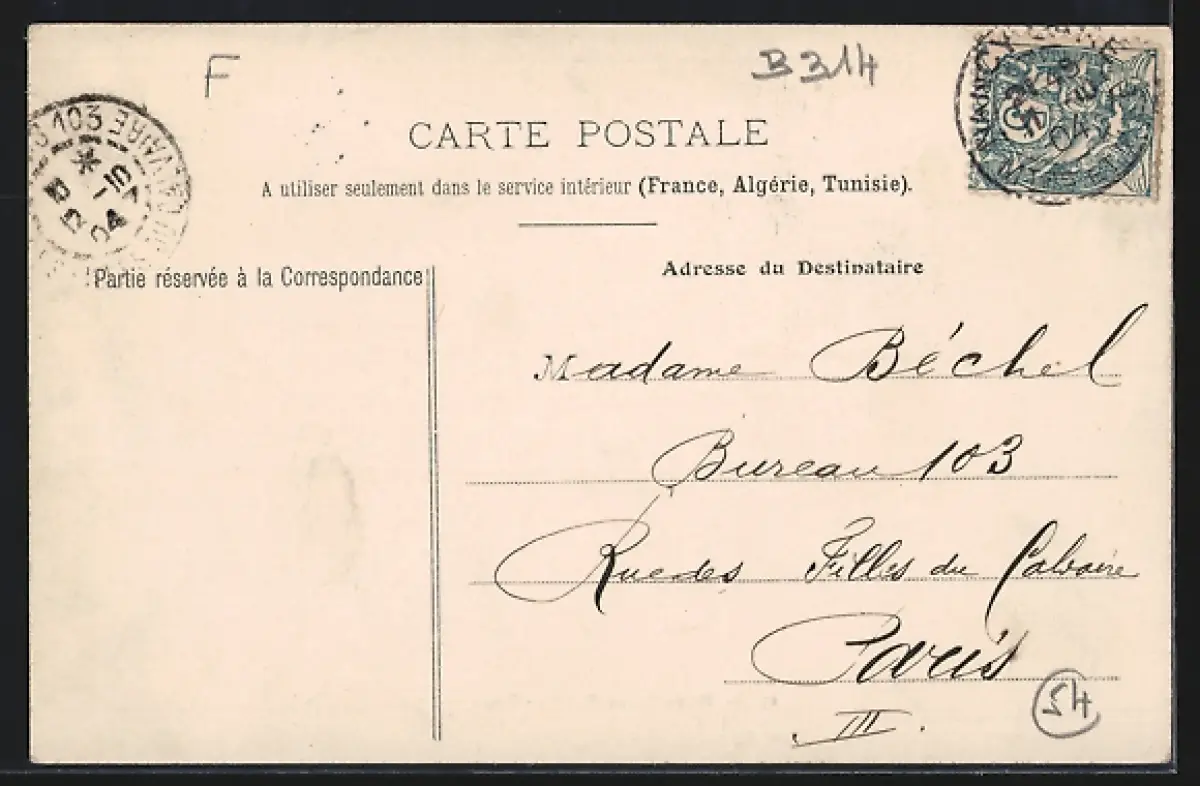 F
B314
103
04
CARTE POSTALE
A utiliser seulement dans le service intérieur (France, Algérie, Tunisie).
Partie réservée à la Correspondance
Adresse du Destinataire
Madame Béchel
Bureau 103
Rue des Filles du Calvaire
Paris
III.
54